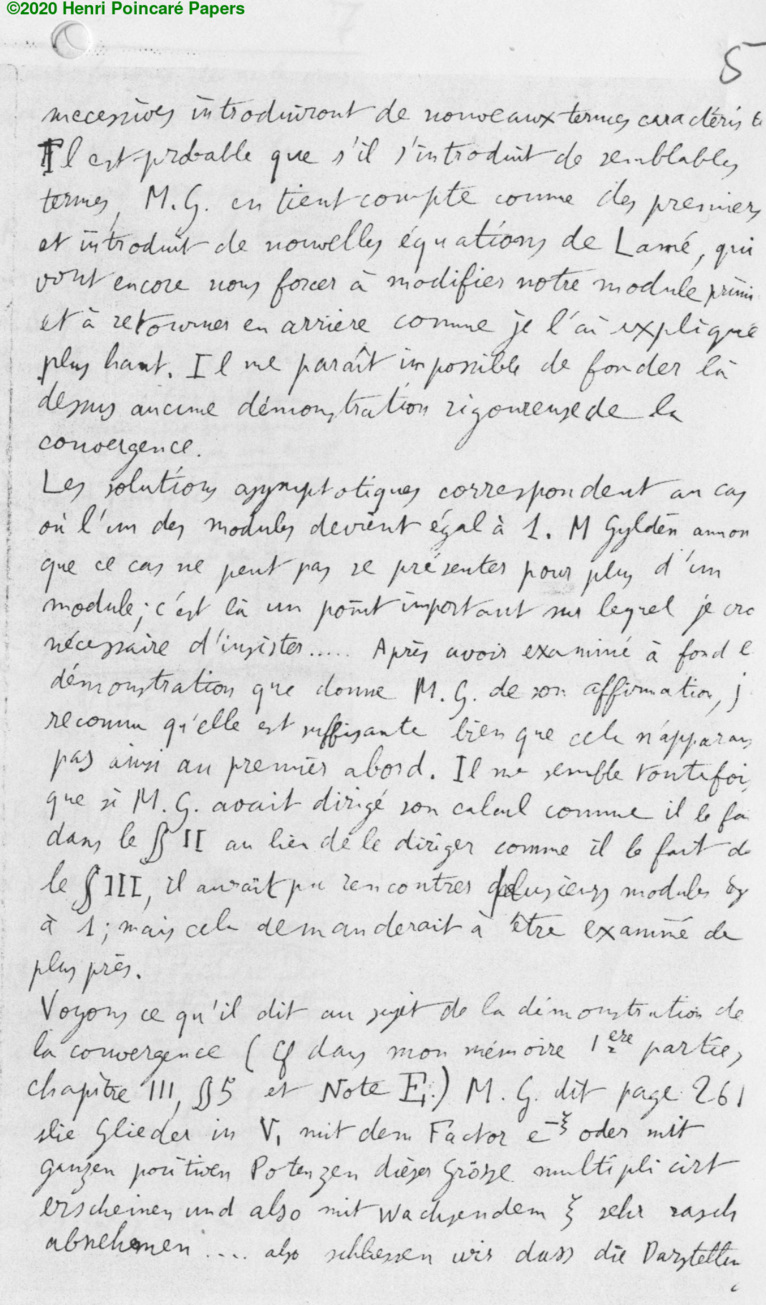 ©2020 Henri Poincaré Papers
5
successives introduiront de nouveaux termes caractéris
Il est probable que s'il s'introduit de semblables
termes, M. G. en tient compte comme des premiers
et introduit de nouvelles équations de Lamé, qui
vont encore nous forcer à modifier notre module primi
et à retourner en arrière comme je l'ai expliqué
plus haut. Il me paraît impossible de fonder là
dessus aucune démonstration rigoureuse de la
convergence.
Les solutions asymptotiques correspondent au cas
où l'un des modules devient égal à 1. M Gyldén annon
que ce cas ne peut pas se présenter pour plus d'un
module; c'est là un point important sur lequel je cro
nécessaire d'insister..... Après avoir examiné à fond l
démonstration que donne M. G. de son affirmation, j
reconnu qu'elle est suffisante bien que cela n'apparais
pas ainsi au premier abord. Il me semble toutefoi
que si M. G. avait dirigé son calcul comme il le fa
dans le § II au lieu de le diriger comme il le fait da
le § III, il aurait pu rencontrer plusieurs modules ég
à 1; mais cela demanderait à être examiné de
plus près.
Voyons ce qu'il dit au sujet de la démonstration de
la convergence (cf dans mon mémoire 1ère partie,
chapitre III, §5 et Note E.) M. G. dit page 261
die Glieder in V₁ mit dem Factor e^-ξ oder mit
ganzen positiven Potenzen dieser Grösse multiplicirt
erscheinen und also mit wachsendem ξ sehr rasch
abnehmen .... also schliessen wir dass die Darstellun